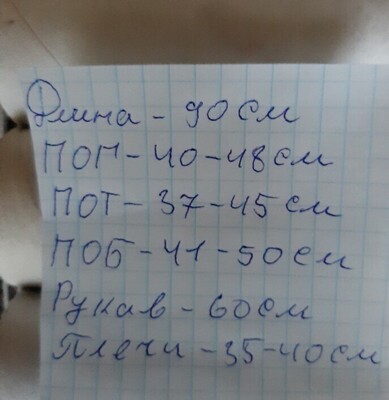 Длина - 90 см
ПОГ - 40 - 48 см
ПОТ - 37 - 45 см
ПОБ - 41 - 50 см
Рукав - 60 см
Плечи - 35 - 40 см